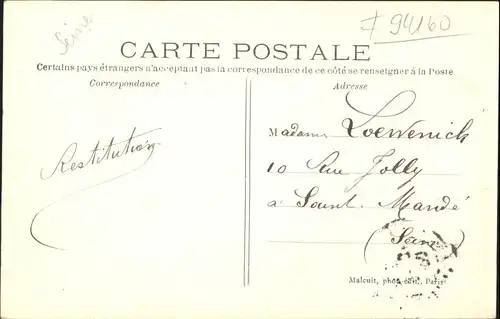 Seine
# 94160
CARTE POSTALE
Certains pays étrangers n'acceptant pas la correspondance de ce côté se renseigner à la Poste
Correspondance
Adresse
Restitution
Madame Loewenick
10 Rue Jolly
à Saint Mandé
(Seine)
Malcuit, phot-édit., Paris